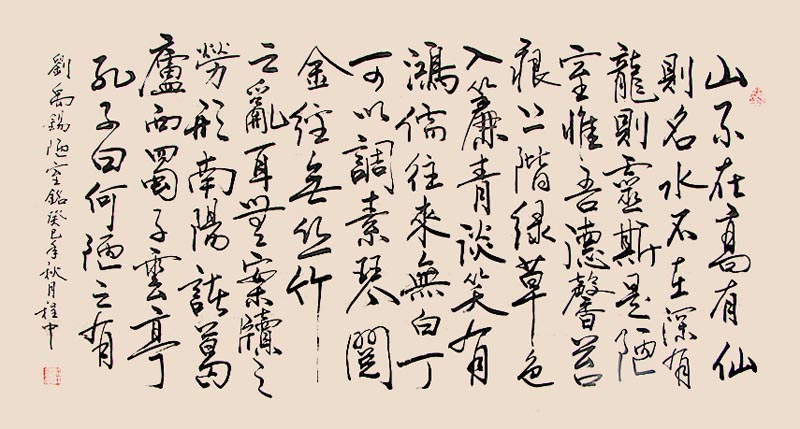 山不在高有仙
則名水不在深有
龍則靈斯是陋
室惟吾德馨苔
痕上階綠草色
入簾青談笑有
鴻儒往來無白丁
可以調素琴閱
金經無絲竹
之亂耳無案牘之
勞形南陽諸葛
廬西蜀子雲亭
孔子曰何陋之有
劉禹錫陋室銘癸巳年秋月程中